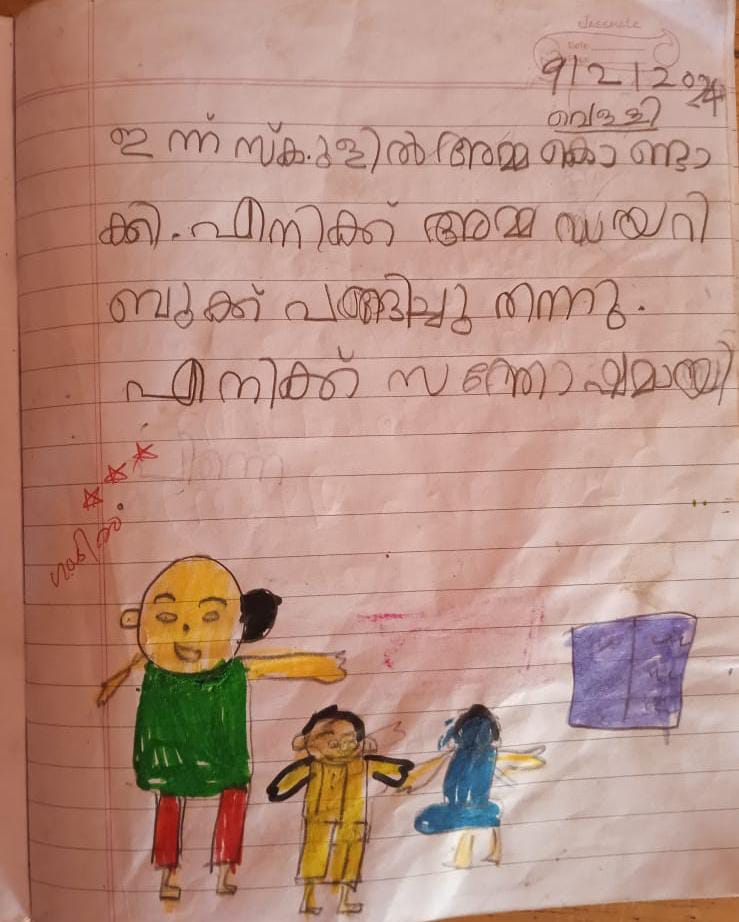 classmate
Date
9/2/2024
വെള്ളി
ഇന്ന് സ്കൂളിൽ അമ്മ കൊണ്ടാ
ക്കി. എനിക്ക് അമ്മ ഡയറി
ബുക്ക് വാങ്ങിച്ചു തന്നു.
എനിക്ക് സന്തോഷമായി
പിന്നെ